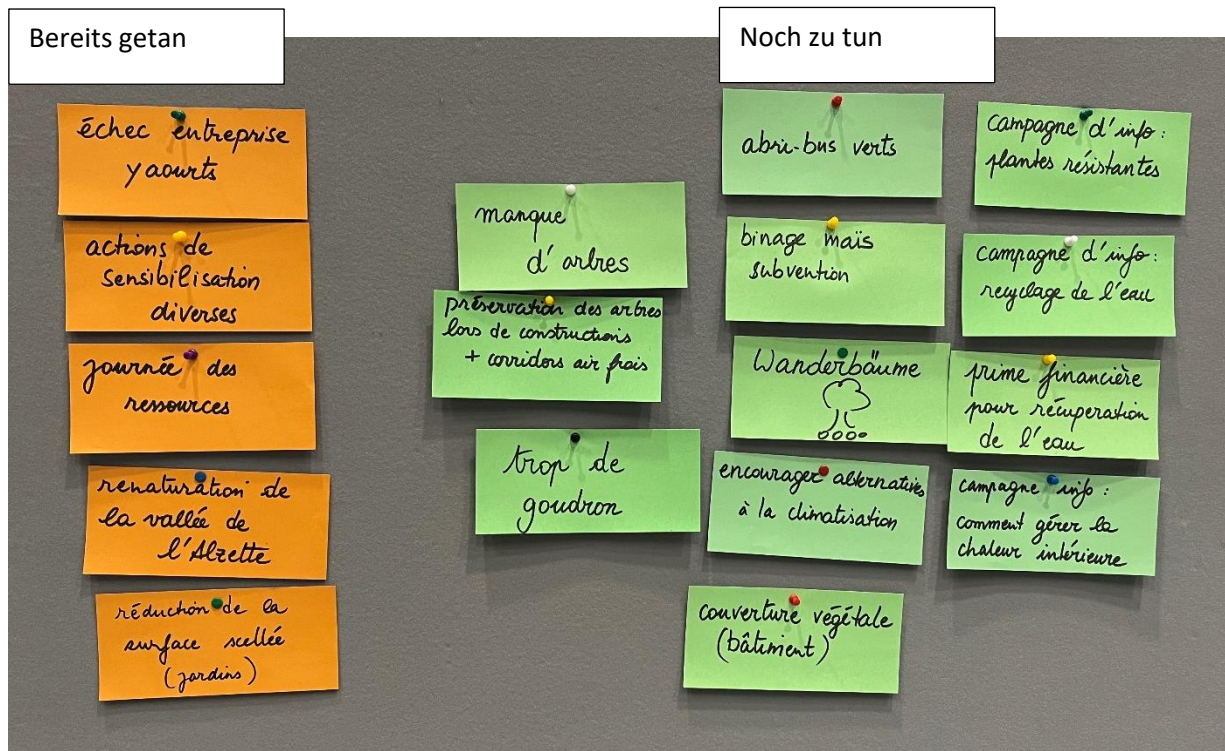 Bereits getan
Noch zu tun
échec entreprise
yaourts
actions de
sensibilisation
diverses
journée des
ressources
renaturation de
la vallée de
l'Alzette
réduction de la
surface scellée
(jardins)
manque
d'arbres
préservation des arbres
lors de constructions
+ corridors air frais
trop de
goudron
abri-bus verts
binage maïs
subvention
Wanderbäume
encourager alternatives
à la climatisation
couverture végétale
(bâtiment)
campagne d'info:
plantes résistantes
campagne d'info:
recyclage de l'eau
prime financière
pour récuperation
de l'eau
campagne info:
comment gérer la
chaleur intérieure